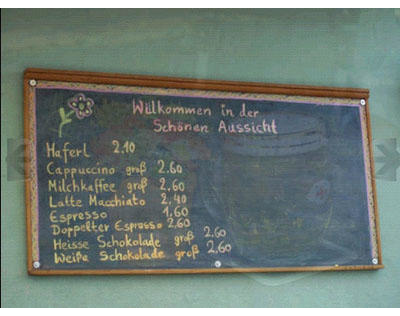 Willkommen in der
Schönen Aussicht
Haferl 2.10
Cappuccino groß 2.60
Milchkaffee groß 2.60
Latte Macchiato 2,40
Espresso 1,60
Doppelter Espresso 2.60
Heisse Schokolade groß 2,60
Weiße Schokolade groß 2,60